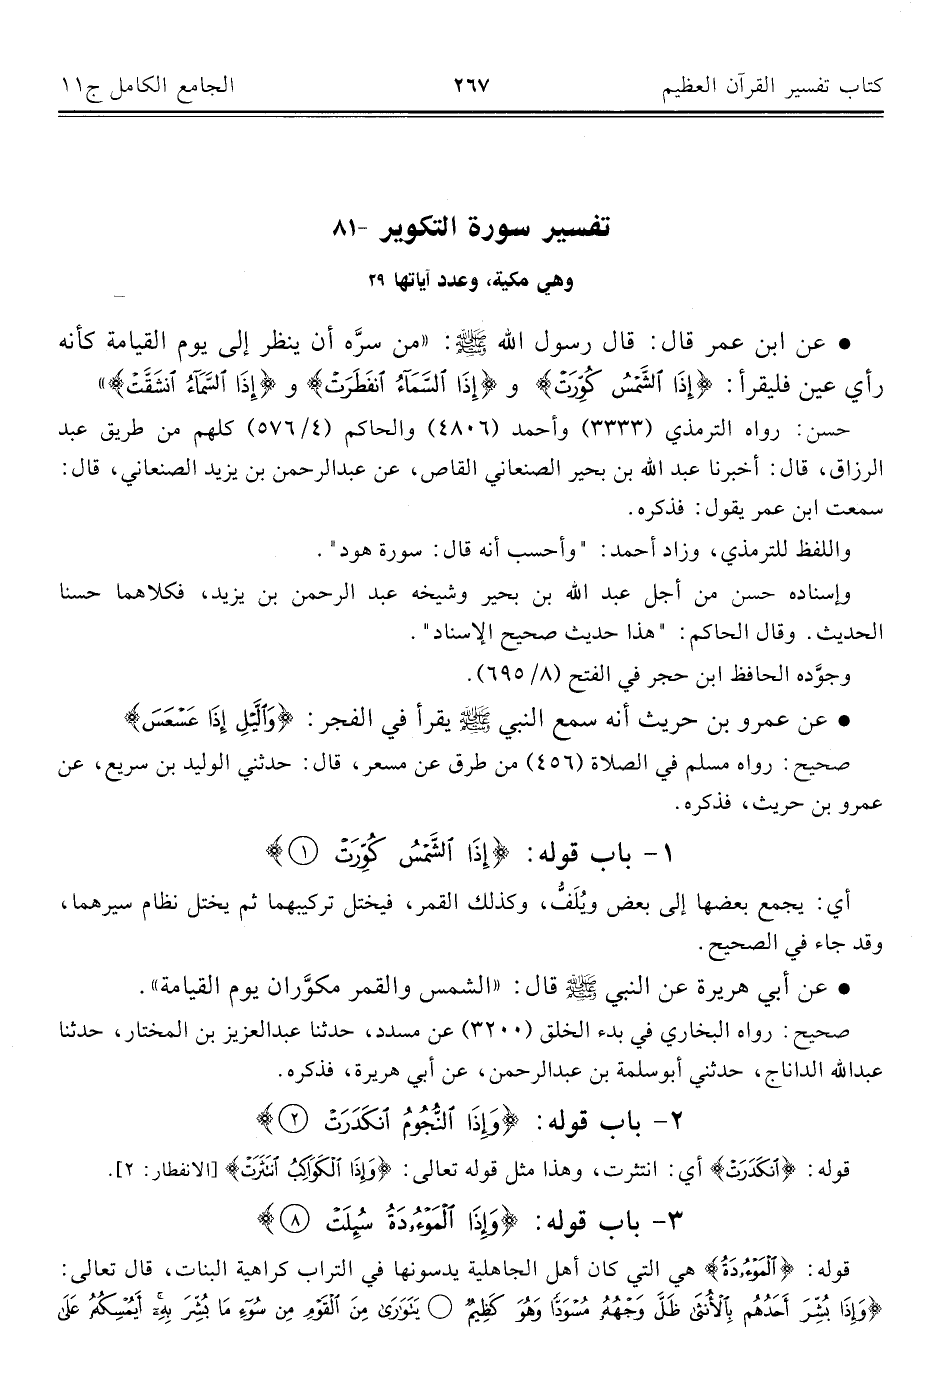 كتاب تفسير القرآن العظيم ٢٦٧ الجامع الكامل ج١١
تفسير سورة التكوير -٨١
وهي مكية، وعدد آياتها ٢٩
• عن ابن عمر قال: قال رسول الله ﷺ: «من سرَّه أن ينظر إلى يوم القيامة كأنه
رأي عين فليقرأ: ﴿إِذَا ٱلشَّمۡسُ كُوِّرَتۡ﴾ و ﴿إِذَا ٱلسَّمَآءُ ٱنفَطَرَتۡ﴾ و ﴿إِذَا ٱلسَّمَآءُ ٱنشَقَّتۡ﴾»
حسن: رواه الترمذي (٣٣٣٣) وأحمد (٤٨٠٦) والحاكم (٤/ ٥٧٦) كلهم من طريق عبد
الرزاق، قال: أخبرنا عبد الله بن بحير الصنعاني القاص، عن عبدالرحمن بن يزيد الصنعاني، قال:
سمعت ابن عمر يقول: فذكره.
واللفظ للترمذي، وزاد أحمد: "وأحسب أنه قال: سورة هود".
وإسناده حسن من أجل عبد الله بن بحير وشيخه عبد الرحمن بن يزيد، فكلاهما حسنا
الحديث. وقال الحاكم: "هذا حديث صحيح الإسناد".
وجوَّده الحافظ ابن حجر في الفتح (٨/ ٦٩٥).
• عن عمرو بن حريث أنه سمع النبي ﷺ يقرأ في الفجر: ﴿وَٱلَّيۡلِ إِذَا عَسۡعَسَ﴾
صحيح: رواه مسلم في الصلاة (٤٥٦) من طرق عن مسعر، قال: حدثني الوليد بن سريع، عن
عمرو بن حريث، فذكره.
١- باب قوله: ﴿إِذَا ٱلشَّمۡسُ كُوِّرَتۡ ١﴾
أي: يجمع بعضها إلى بعض ويُلَفُّ، وكذلك القمر، فيختل تركيبهما ثم يختل نظام سيرهما،
وقد جاء في الصحيح.
• عن أبي هريرة عن النبي ﷺ قال: «الشمس والقمر مكوَّران يوم القيامة».
صحيح: رواه البخاري في بدء الخلق (٣٢٠٠) عن مسدد، حدثنا عبدالعزيز بن المختار، حدثنا
عبدالله الداناج، حدثني أبوسلمة بن عبدالرحمن، عن أبي هريرة، فذكره.
٢- باب قوله: ﴿وَإِذَا ٱلنُّجُومُ ٱنكَدَرَتۡ ٢﴾
قوله: ﴿ٱنكَدَرَتۡ﴾ أي: انتثرت، وهذا مثل قوله تعالى: ﴿وَإِذَا ٱلۡكَوَاكِبُ ٱنتَثَرَتۡ﴾ [الانفطار: ٢].
٣- باب قوله: ﴿وَإِذَا ٱلۡمَوۡءُۥدَةُ سُئِلَتۡ ٨﴾
قوله: ﴿ٱلۡمَوۡءُۥدَةُ﴾ هي التي كان أهل الجاهلية يدسونها في التراب كراهية البنات، قال تعالى:
﴿وَإِذَا بُشِّرَ أَحَدُهُم بِٱلۡأُنثَىٰ ظَلَّ وَجۡهُهُۥ مُسۡوَدّٗا وَهُوَ كَظِيمٞ ○ يَتَوَٰرَىٰ مِنَ ٱلۡقَوۡمِ مِن سُوٓءِ مَا بُشِّرَ بِهِۦٓۚ أَيُمۡسِكُهُۥ عَلَىٰ